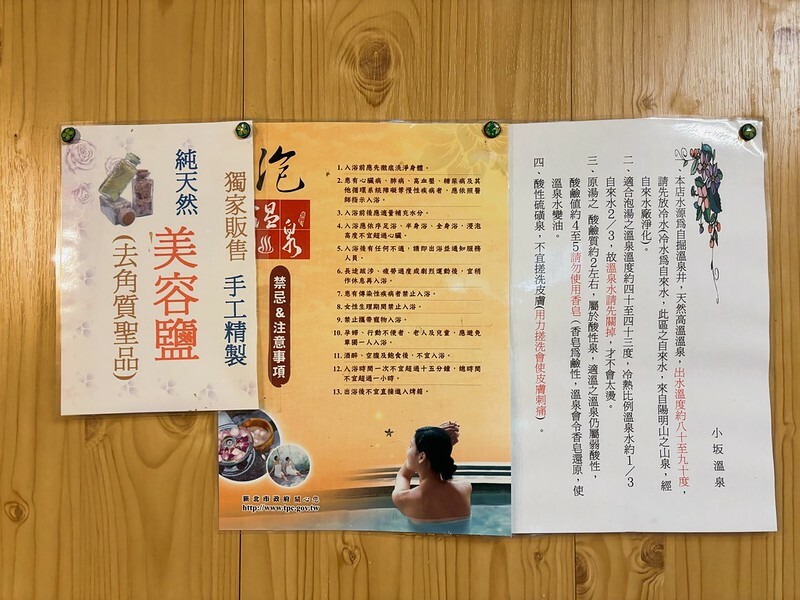 獨家販售 手工精製
純天然 美容鹽
(去角質聖品)
泡
溫泉
禁忌&注意事項
1. 入浴前應先徹底洗淨身體。
2. 患有心臟病、肺病、高血壓、糖尿病及其
他循環系統障礙等慢性疾病者，應依照醫
師指示入浴。
3. 入浴前後應適量補充水分。
4. 入浴應依序足浴、半身浴、全身浴，浸泡
高度不宜超過心臟。
5. 入浴後有任何不適，請即出浴並通知服務
人員。
6. 長途跋涉、疲勞過度或劇烈運動後，宜稍
作休息再入浴。
7. 患有傳染性疾病者禁止入浴。
8. 女性生理期間禁止入浴。
9. 禁止攜帶寵物入浴。
10. 孕婦、行動不便者、老人及兒童，應避免
單獨一人入浴。
11. 酒醉、空腹及飽食後，不宜入浴。
12. 入浴時間一次不宜超過十五分鐘，總時間
不宜超過一小時。
13. 出浴後不宜直接進入烤箱。
新北市政府 關心您
http://www.tpc.gov.tw
小坂溫泉
一、本店水源為自掘溫泉井，天然高溫溫泉，出水溫度約八十至九十度，
請先放冷水(冷水為自來水，此區之自來水，來自陽明山之山泉，經
自來水廠淨化)。
二、適合泡湯之溫泉溫度約四十至四十三度，冷熱比例溫泉水約1／3
自來水2／3，故溫泉水請先關掉，才不會太燙。
三、原湯之 酸鹼質約2左右，屬於酸性泉，適溫之溫泉仍屬弱酸性，
酸鹼值約4至5請勿使用香皂(香皂為鹼性，溫泉會令香皂還原，使
溫泉水變油。
四、酸性硫磺泉，不宜搓洗皮膚(用力搓洗會使皮膚刺痛)。